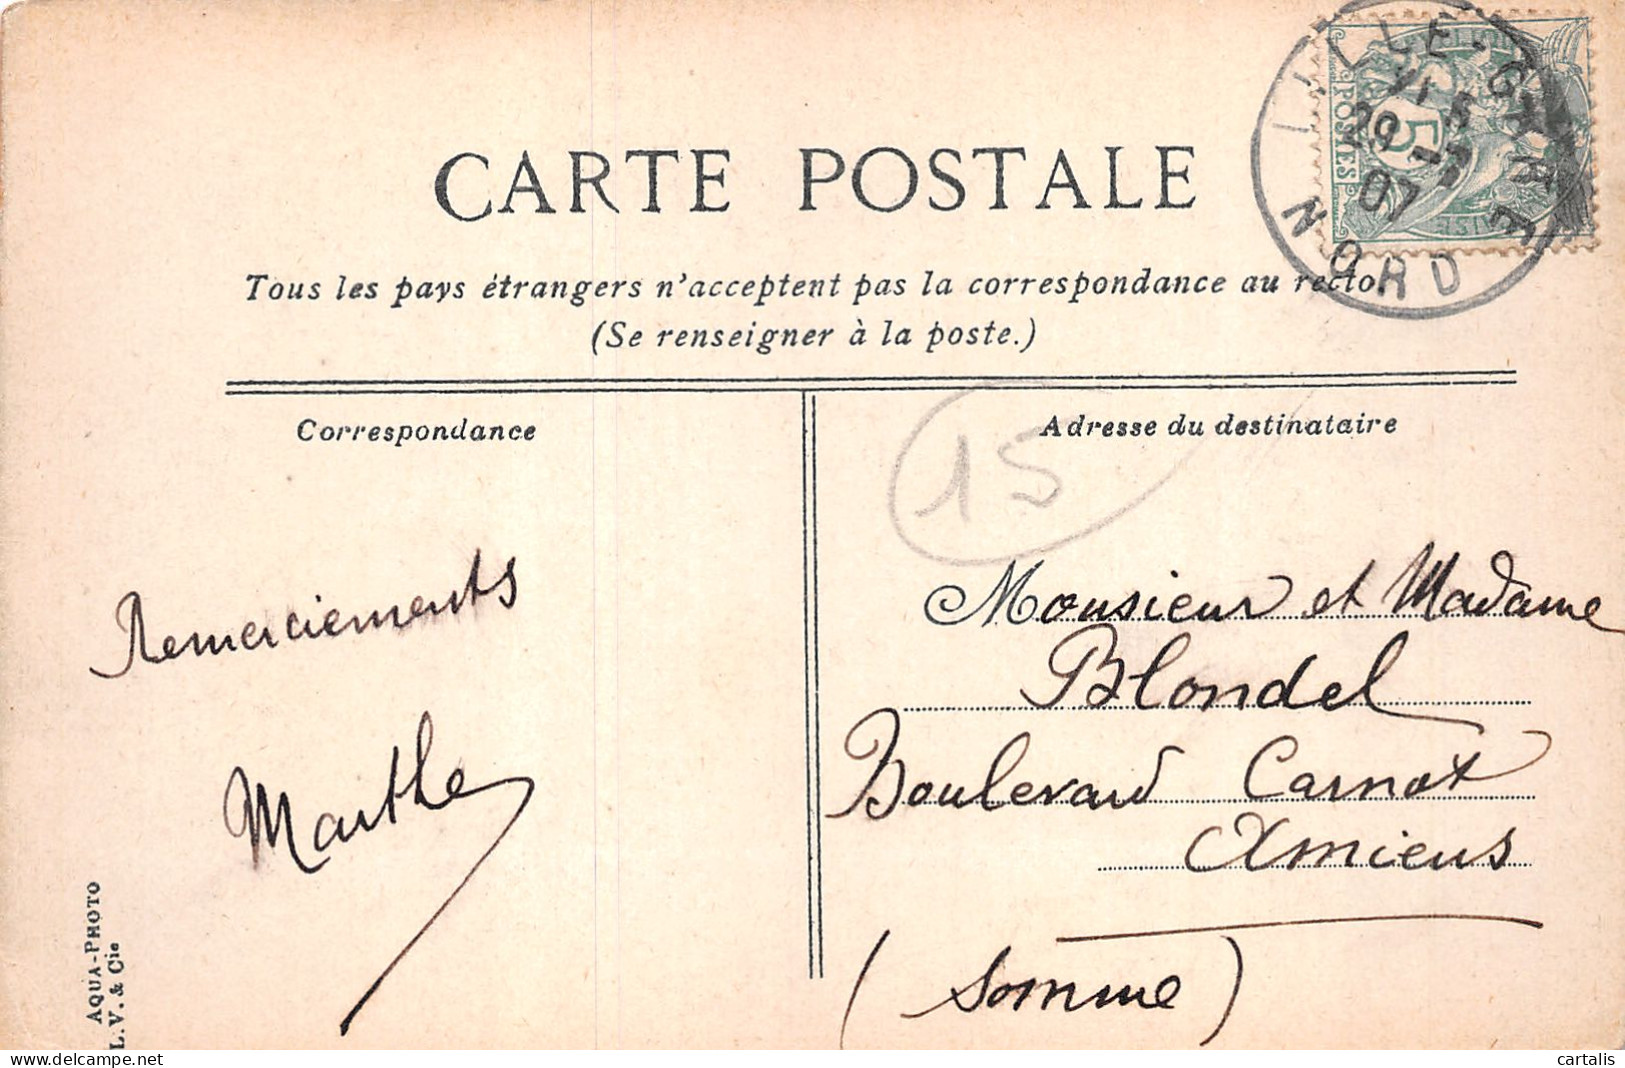 CARTE POSTALE
Tous les pays étrangers n'acceptent pas la correspondance au recto.
(Se renseigner à la poste.)
LILLE-GARE
29 -7
07
NORD
POSTES
5
Correspondance
Remerciements
Marthe
AQUA-PHOTO
L.V. & Cie
Adresse du destinataire
15
Monsieur et Madame
Blondel
Boulevard Carnot
Amiens
(Somme)
cartalis